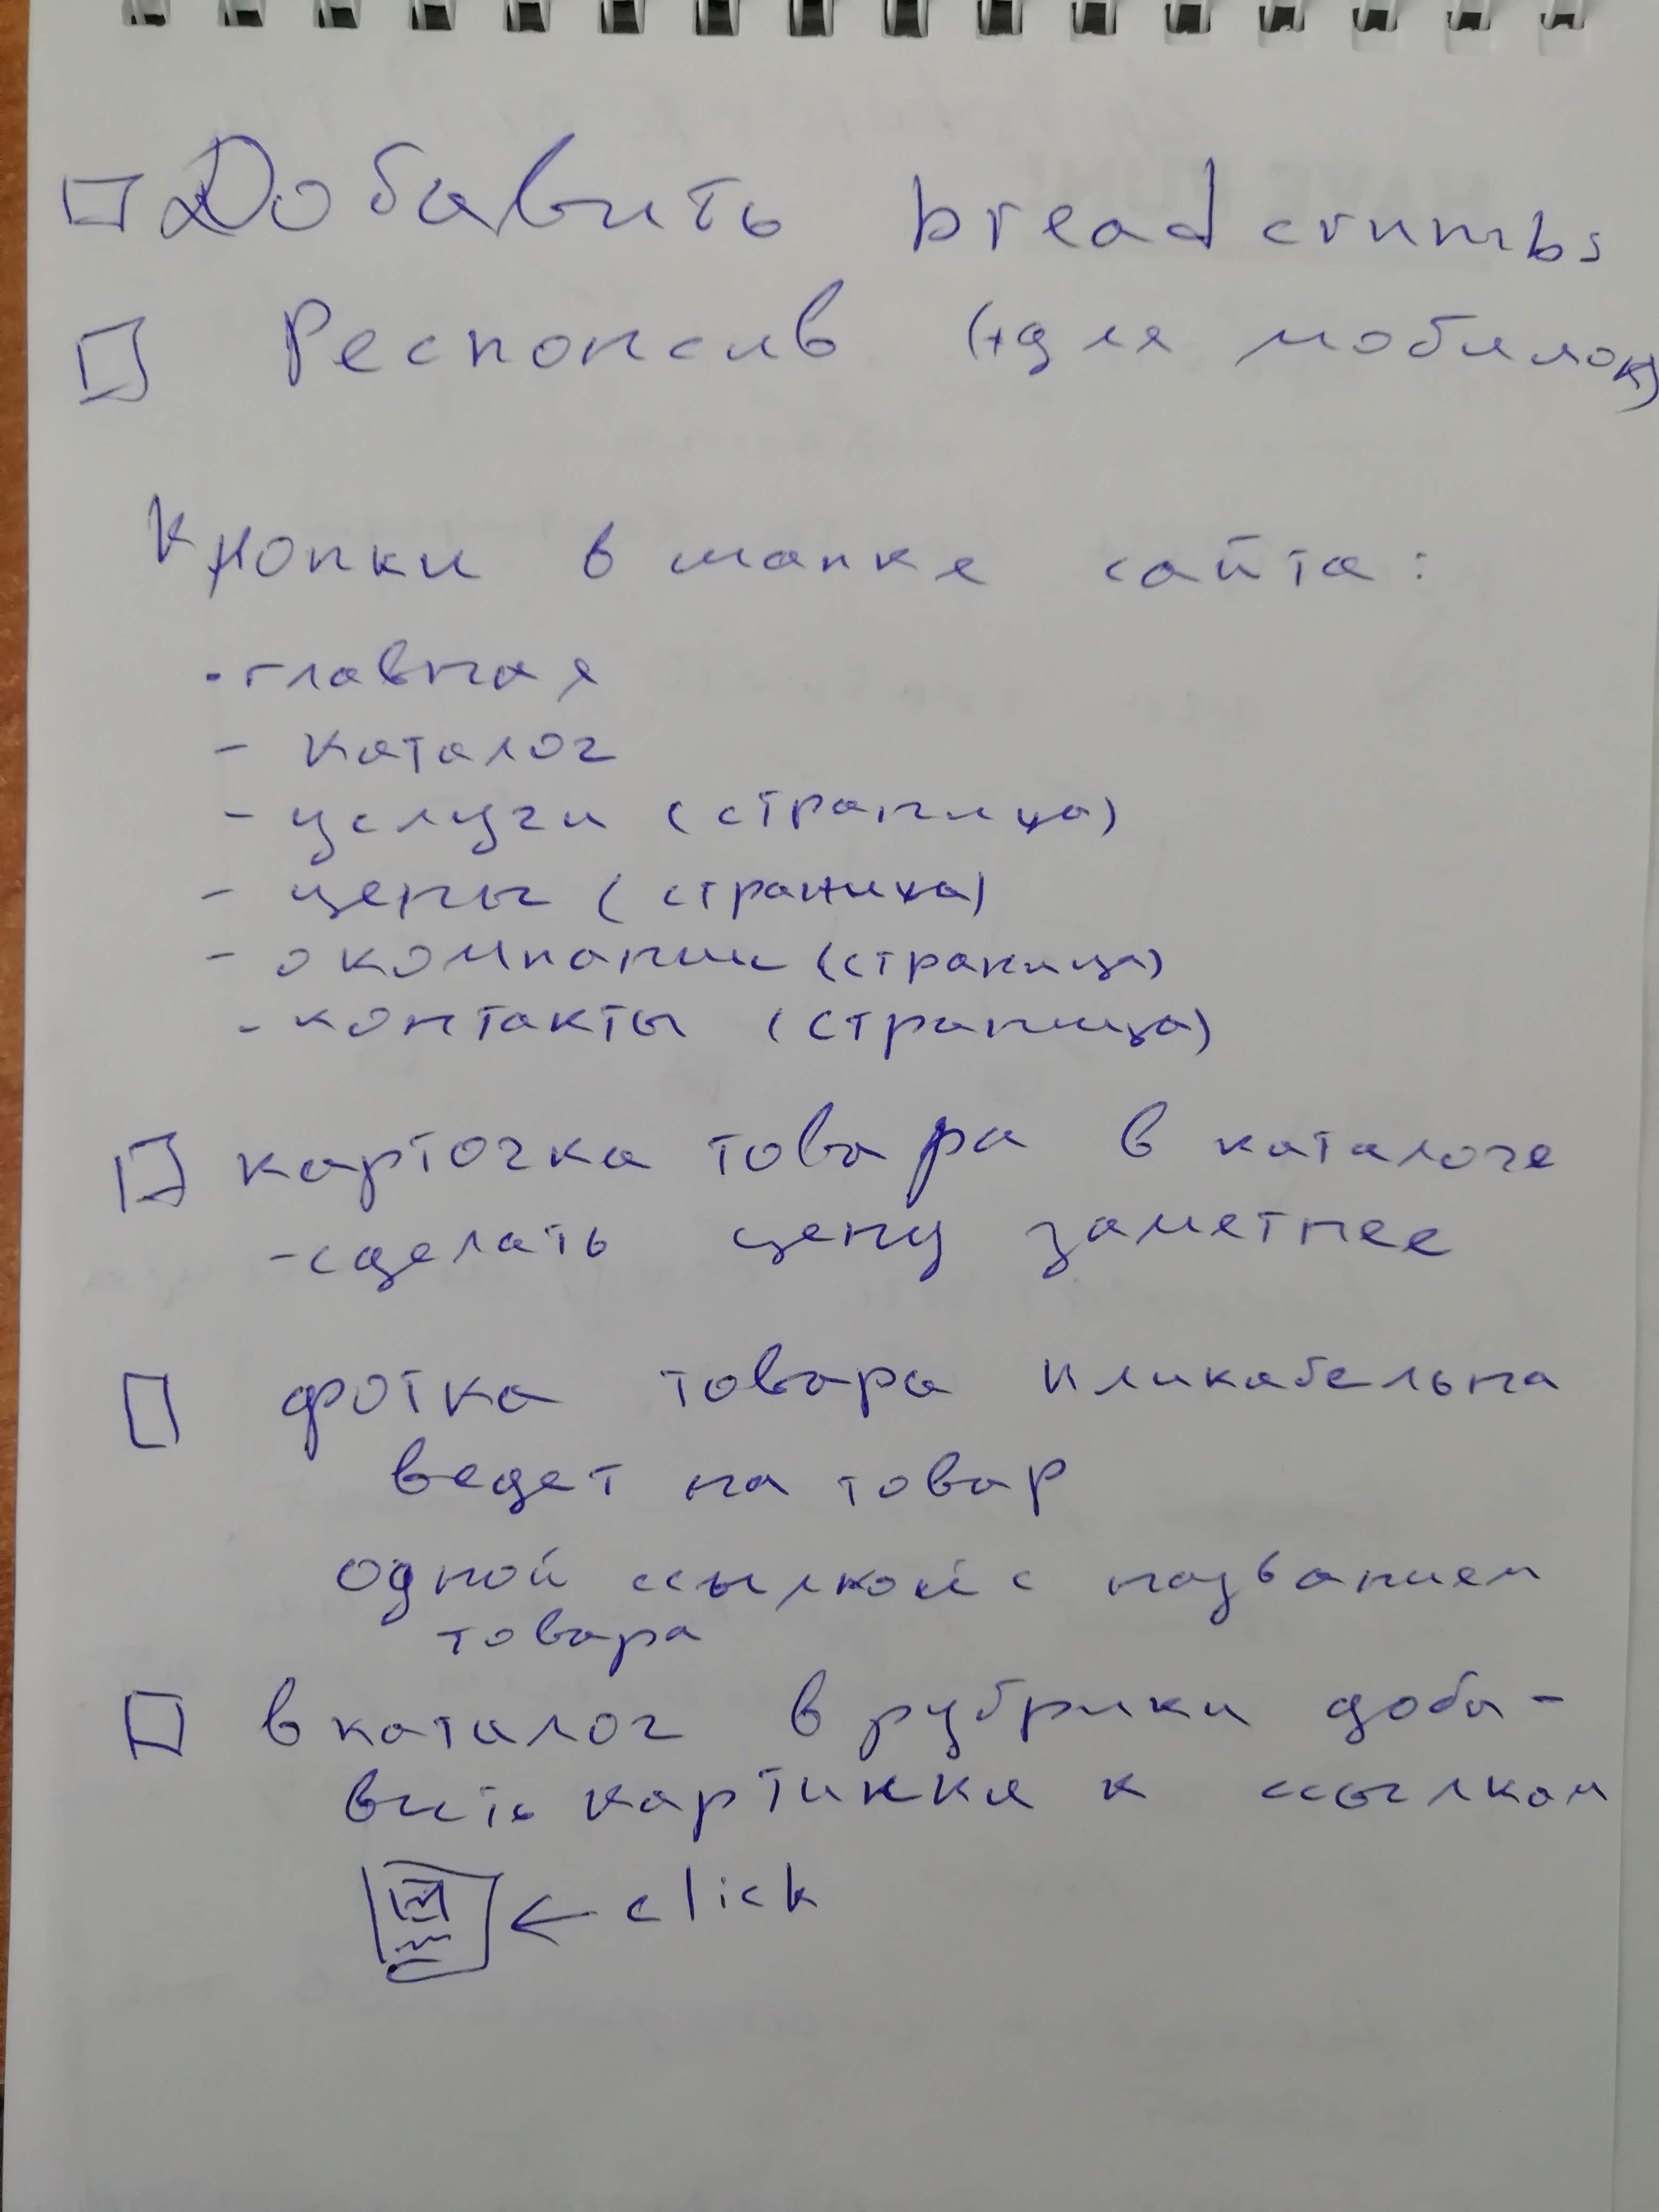 Добавить breadcrumbs
Респонсив (+для мобилок)
Кнопки в шапке сайта:
- главная
- каталог
- услуги (страница)
- цены (страница)
- о компании (страница)
- контакты (страница)
карточка товара в каталоге
- сделать цену заметнее
фотка товара кликабельна
ведет на товар
одной ссылкой с названием
товара
в каталог в рубрики доба-
вить картинки к ссылкам
← click